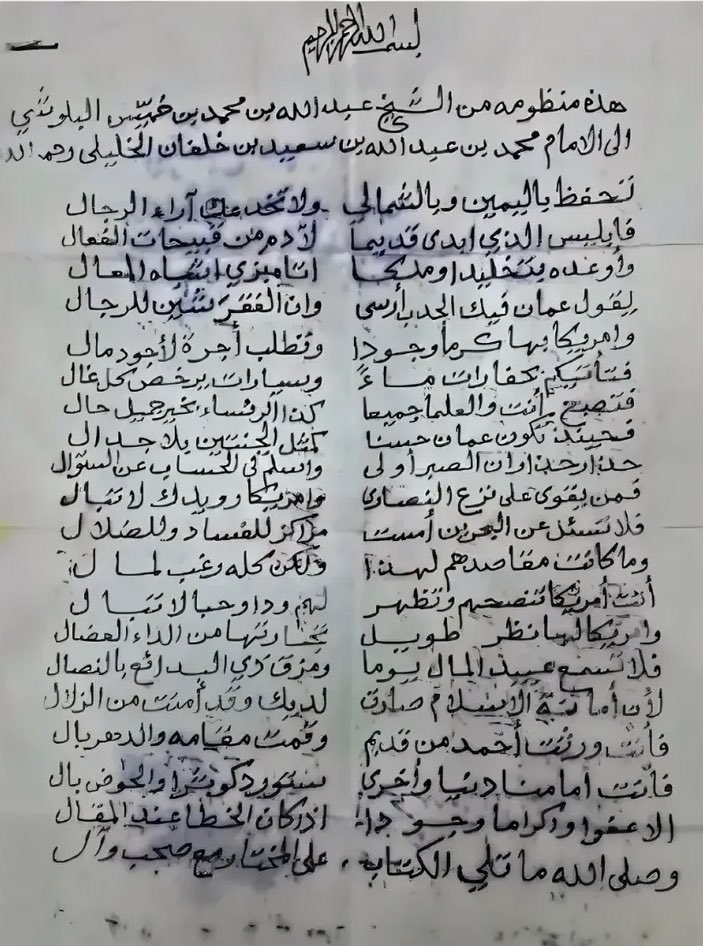 بسم الله الرحمن الرحيم
هذه منظومه من الشيخ عبد الله بن محمد بن خميس البلوشي
الى الامام محمد بن عبد الله بن سعيد بن خلفان الخليلي رحمه الله
تحفظ باليمين وبالشمالي ولا تخد عنك آراء الرجال
فابليس الذي ابدى قديما لآدم من قبيحات الفعال
وأوعده بتخليد او ملكا
يقول عمان فيك الجدب أرسى وان الفقر شين للرجال
وامريكا بها كرما وجودا وتطلب أجرة لأجود مال
فتأتيكم بحفارات ماءً وبسيارات يرخص كل غال
فتصبح أنت والعلما جميعا كذا الرئساء بخير جميل حال
فحينئذ تكون عمان حسنا كمثل الجنتين بلا جدال
حذار حذار ان الصبر أولى واسلم في الحساب عن السئوال
فمن يقوى على نزع النصارى وامريكا رويدك لا تبال
فلا تسئل عن البحرين أمست مراكز للفساد وللضلال
وما كانت مقاصدهم لهذا ولكن كله رغب لمال
أتت أمريكا تنصحهم وتظهر لهم ودا وحبا لا تبال
وامريكا لها نظر طويل تجارتها من الداء العضال
فلا تسمع عبيد المال يوما ومزق ذي البدائع بالنصال
لأن أمانة الاسلام صارت لديك وقد أمنت من الزلال
فأنت ورثت أحمد من قديم وقمت مقامه والدهر بال
فأنت امامنا دنيا وأخرى
الا عفوا واكراما وجودا اذا كان الخطا عند المقال
وصلى الله ما تلي الكتاب على المختار مع صحب وآل